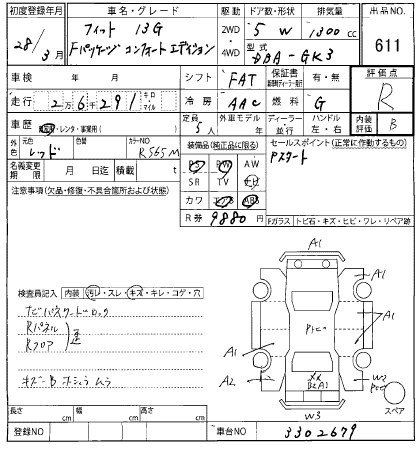 初度登録年月 車名・グレード 駆動 ドア数・形状 排気量 出品NO.
28/3月 フィット 13G 2WD・4WD 5 W 1300cc 611
Fパッケージ コンフォートエディション 型式 DBA-GK3
車検 年 月 シフト FAT 保証書 有・無 評価点
走行 2万6千291 キロ・マイル 冷房 AAC 燃料 G R
車歴 レンタ・事業用( ) 定員 5人 外車モデル 年 ディーラー・並行 ハンドル 左・右 内装評価 B
外色 元色 レッド 色替 カラーNO R565M 装備品(純正品に限る) セールスポイント(正常に作動するもの)
名義変更期限 月 日迄 積載 t PS PW AW Pスタート
注意事項(欠品・修復・不具合箇所および状態) SR TV ナビ
カワ エアB ABS
R券 9880円 Fガラス トビ石・キズ・ヒビ・ワレ・リペア跡
A1
A1
検査員記入 内装 汚れ・スレ・キズ・キレ・コゲ・穴
ナビパスワードロック
Rパネル
Rフロア
A1
A1
A2
XX
W3
スペア
長さ cm 幅 cm 高さ cm
W3
登録NO 車台NO 3302679